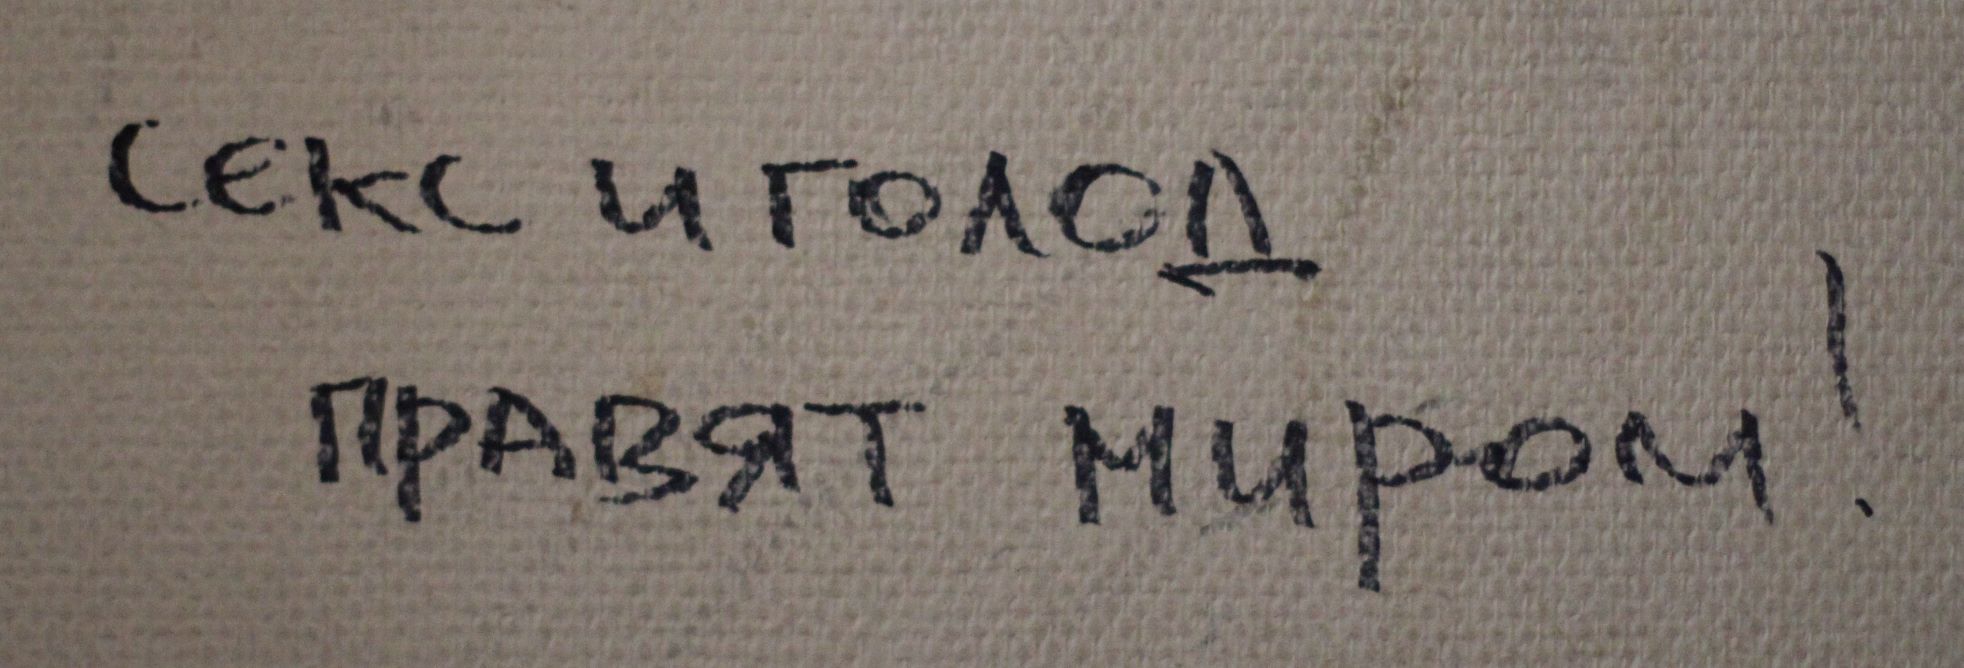 СЕКС И ГОЛОД
ПРАВЯТ МИРОМ!